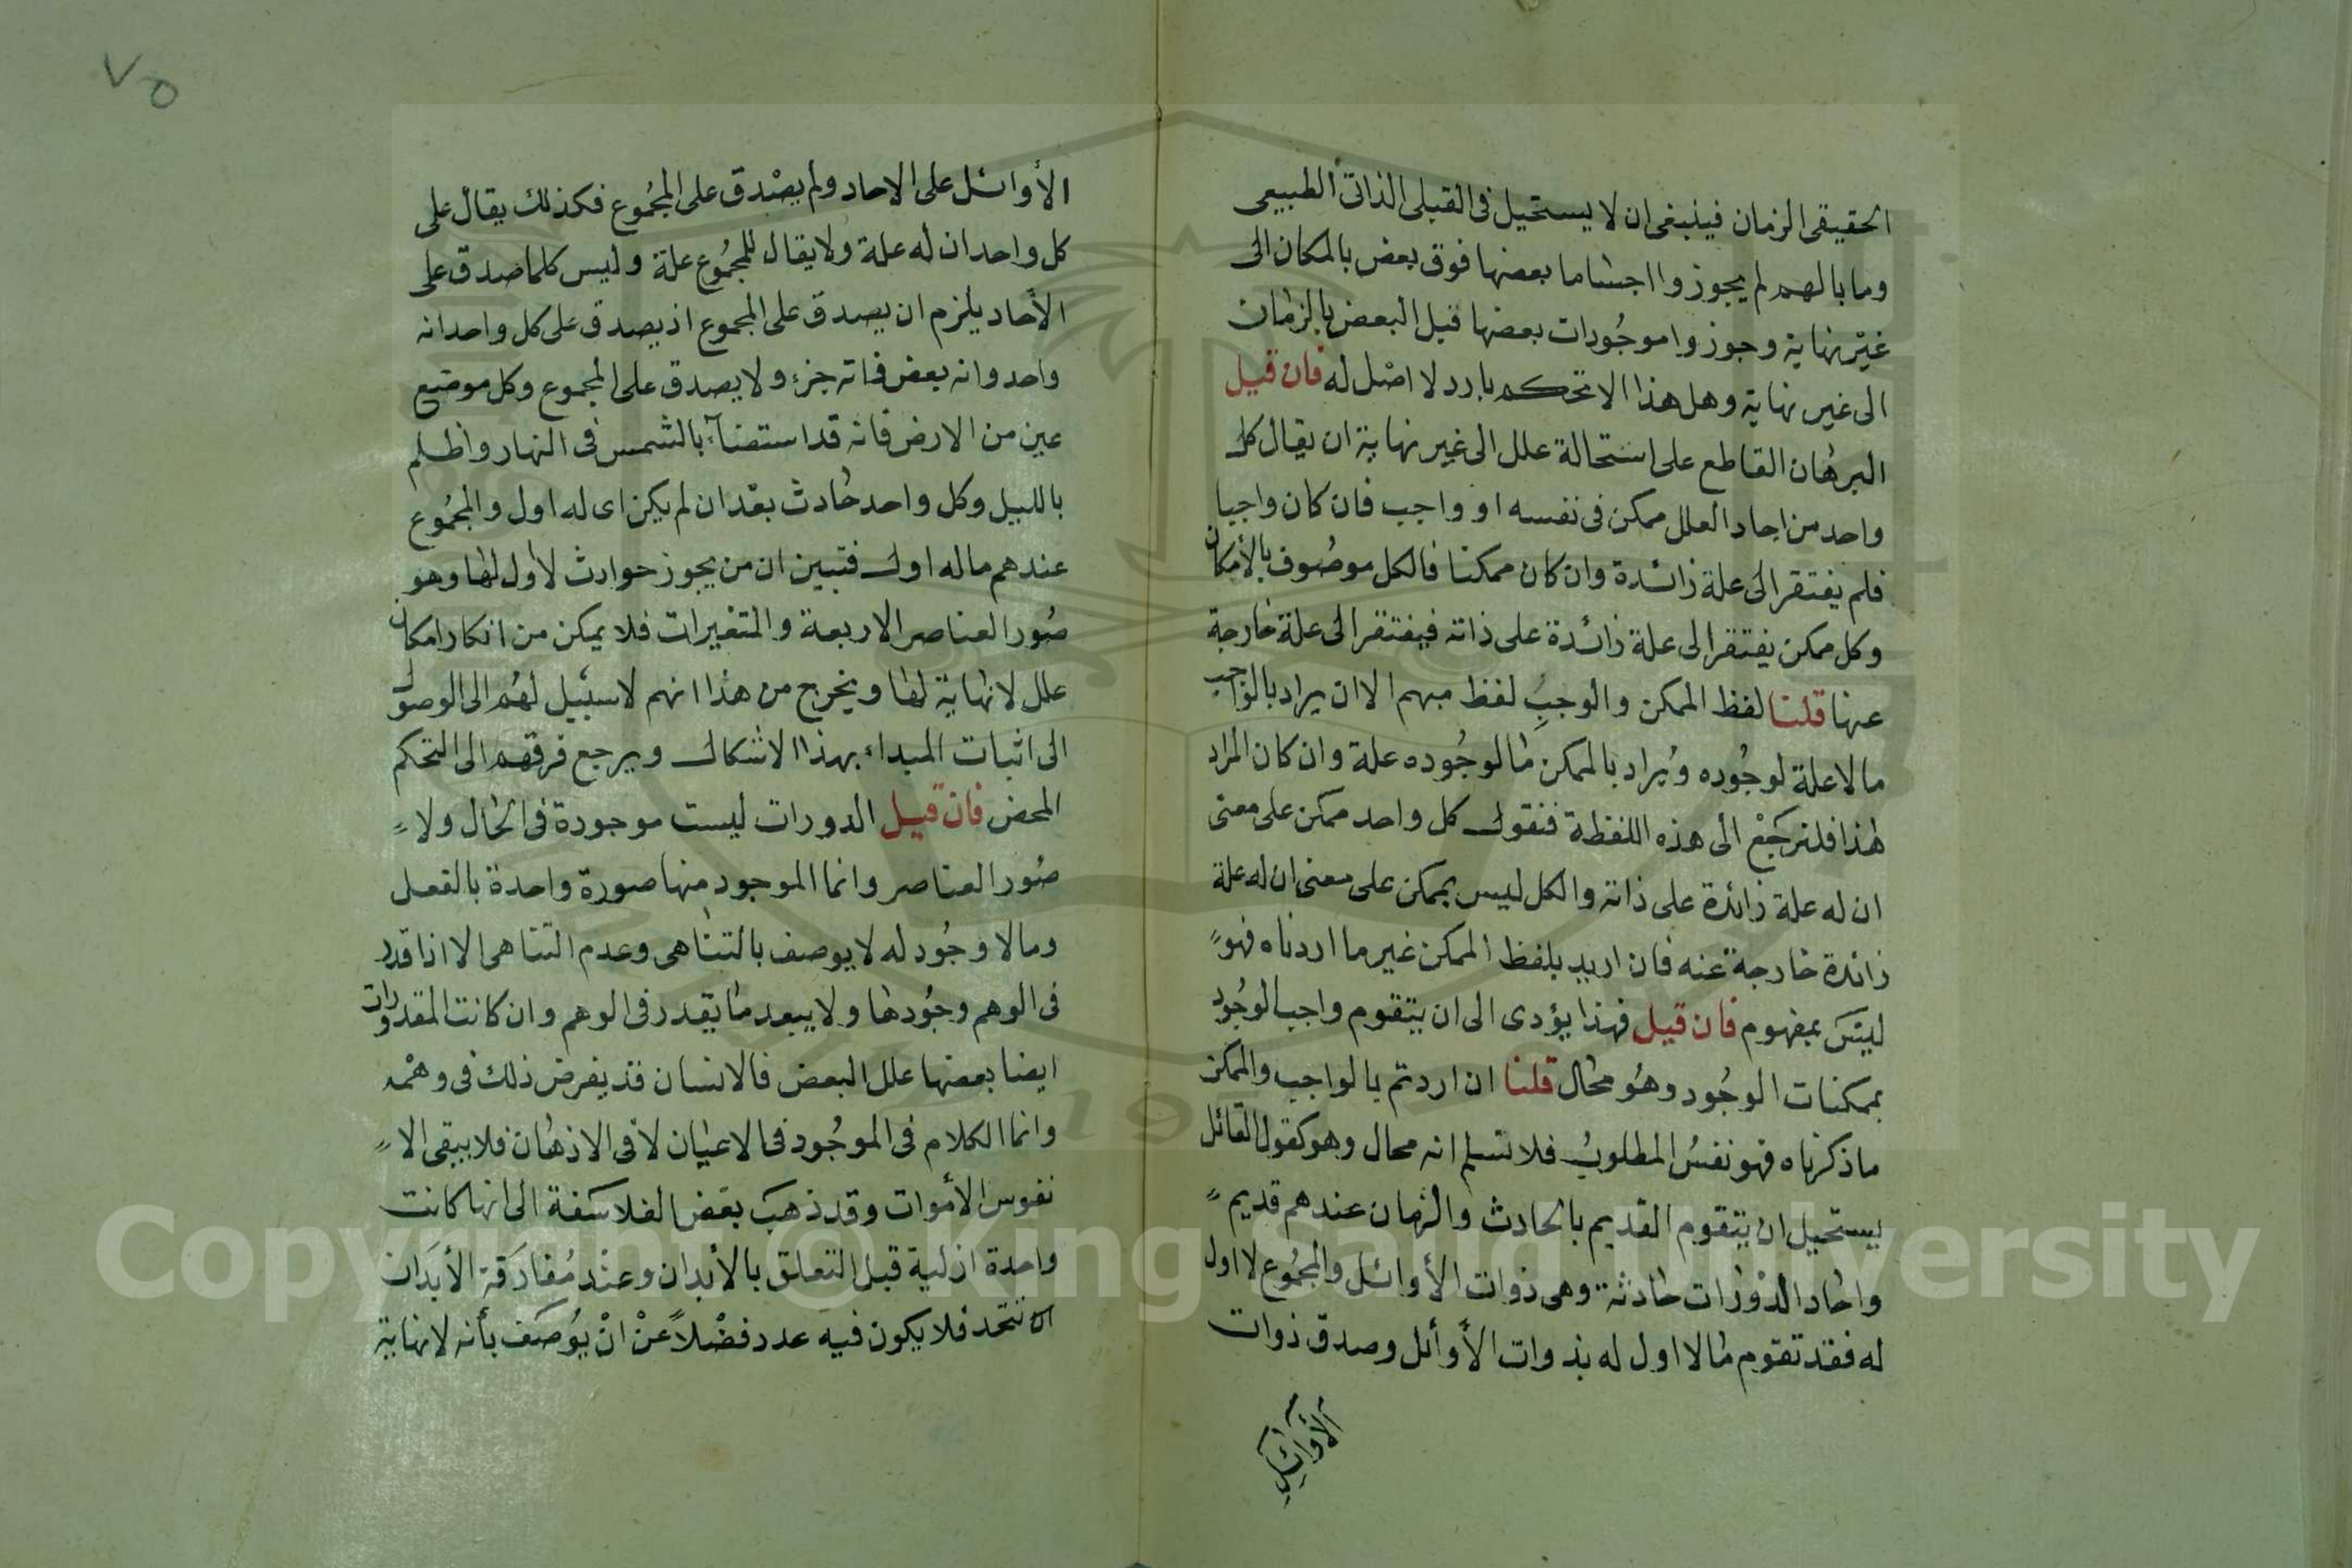 الحقيقى الزمان فينبغى ان لا يستحيل فى القبلى الذاتى الطبيعى
وما بالهم لم يجوزوا اجساما بعضها فوق بعض بالمكان الى
غير نهاية وجوزوا موجودات بعضها قبل البعض بالزمان
الى غير نهاية وهل هذا الا تحكم بارد لا اصل له فان قيل
البرهان القاطع على استحالة علل الى غير نهاية ان يقال كل
واحد من احاد العلل ممكن فى نفسه او واجب فان كان واجبا
فلم يفتقر الى علة زائدة وان كان ممكنا فالكل موصوف بالأمكان
وكل ممكن يفتقر الى علة زائدة على ذاته فيفتقر الى علة خارجة
عنها قلنا لفظ الممكن والوجب لفظ مبهم الا ان يراد بالواجب
ما لا علة لوجوده ويراد بالممكن ما لوجوده علة وان كان المراد
هذا فلنرجع الى هذه اللفظة فنقول كل واحد ممكن على معنى
ان له علة زائدة على ذاته والكل ليس بممكن على معنى ان له علة
زائدة خارجة عنه فان اريد بلفظ الممكن غير ما اردناه فهو
ليس بمفهوم فان قيل فهذا يؤدى الى ان يتقوم واجب الوجود
بممكنات الوجود وهو محال قلنا ان اردتم بالواجب والممكن
ما ذكرناه فهو نفس المطلوب فلا نسلم انه محال وهو كقول القائل
يستحيل ان يتقوم القديم بالحادث والزمان عندهم قديم
واحاد الدورات حادثة وهى ذوات الأوائل والمجموع لا اول
له فقد تقوم ما لا اول له بذوات الأوائل وصدق ذوات
الأوائل
٧٥
الأوائل على الاحاد ولم يصدق على المجموع فكذلك يقال على
كل واحد ان له علة ولا يقال للمجموع علة وليس كلما صدق على
الأحاد يلزم ان يصدق على المجموع اذ يصدق على كل واحد انه
واحد وانه بعض فاته جزء ولا يصدق على المجموع وكل موضع
عين من الارض فانه قد استضآء بالشمس فى النهار واظلم
بالليل وكل واحد حادث بعد ان لم يكن اى له اول والمجموع
عندهم ماله اول فتبين ان من يجوز حوادث لا اول لها وهو
صور العناصر الاربعة والمتغيرات فلا يمكن من انكار امكان
علل لا نهاية لها ويخرج من هذا انهم لا سبيل لهم الى الوصول
الى اثبات المبداء بهذا الاشكال ويرجع فرقهم الى التحكم
المحض فان قيل الدورات ليست موجودة فى الحال ولا
صور العناصر وانما الموجود منها صورة واحدة بالفعل
وما لا وجود له لا يوصف بالتناهى وعدم التناهى الا اذا قدر
فى الوهم وجودها ولا يبعد ما يقدر فى الوهم وان كانت المقدورات
ايضا بعضها علل البعض فالانسان قد يفرض ذلك فى وهمه
وانما الكلام فى الموجود فى الاعيان لا فى الاذهان فلا يبقى الا
نفوس الأموات وقد ذهب بعض الفلاسفة الى انها كانت
واحدة ازلية قبل التعلق بالأبدان وعند مفارقة الأبدان
تتحد فلا يكون فيه عدد فضلا عن ان يوصف بأنه لا نهاية
Copyright © King Saud University